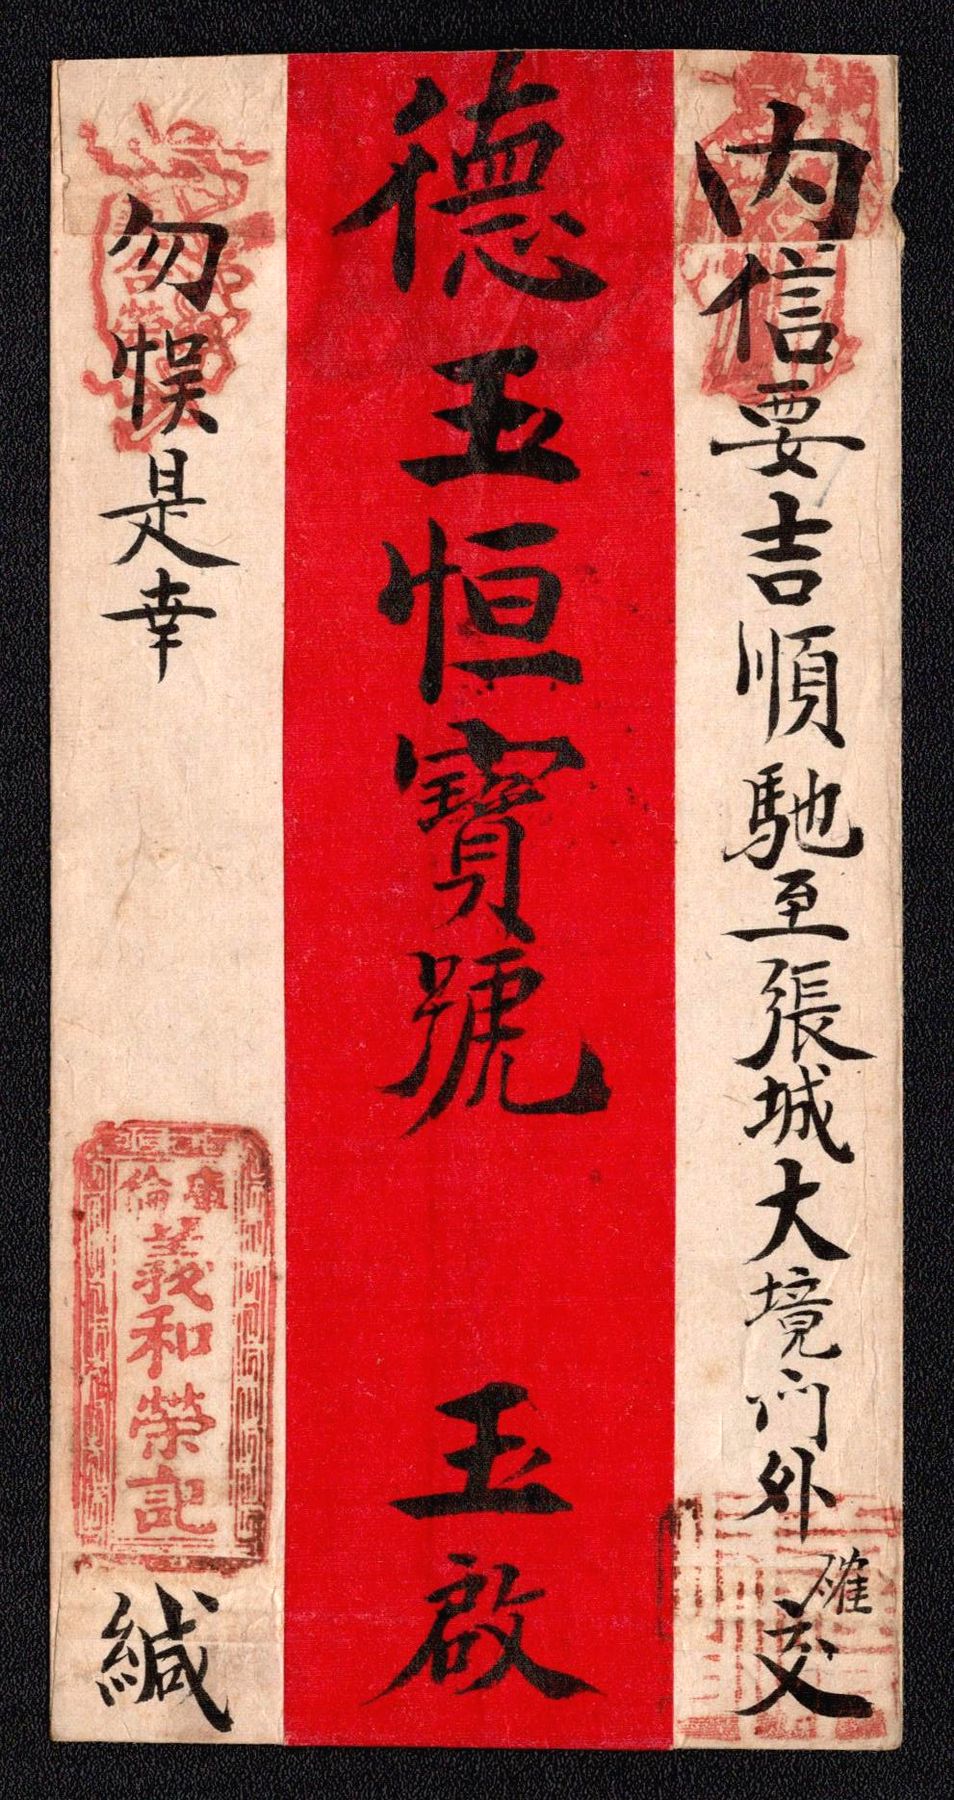 内信要吉順馳至張城大境門外確交
德玉恒寶號 玉啟
勿悞是幸
庫倫
義和榮記
緘